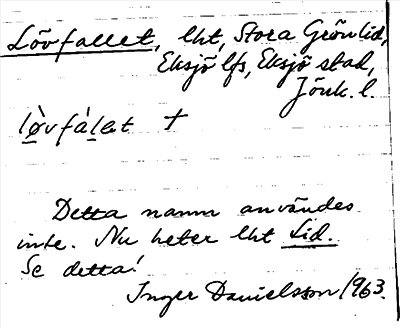 Lövfallet, lht, Stora Grönlid,
Eksjö lfs, Eksjö stad,
Jönk. l.
lø̀vfálət †
Detta namn användes
inte. Nu heter lht Lid.
Se detta!
Inger Danielsson 1963.